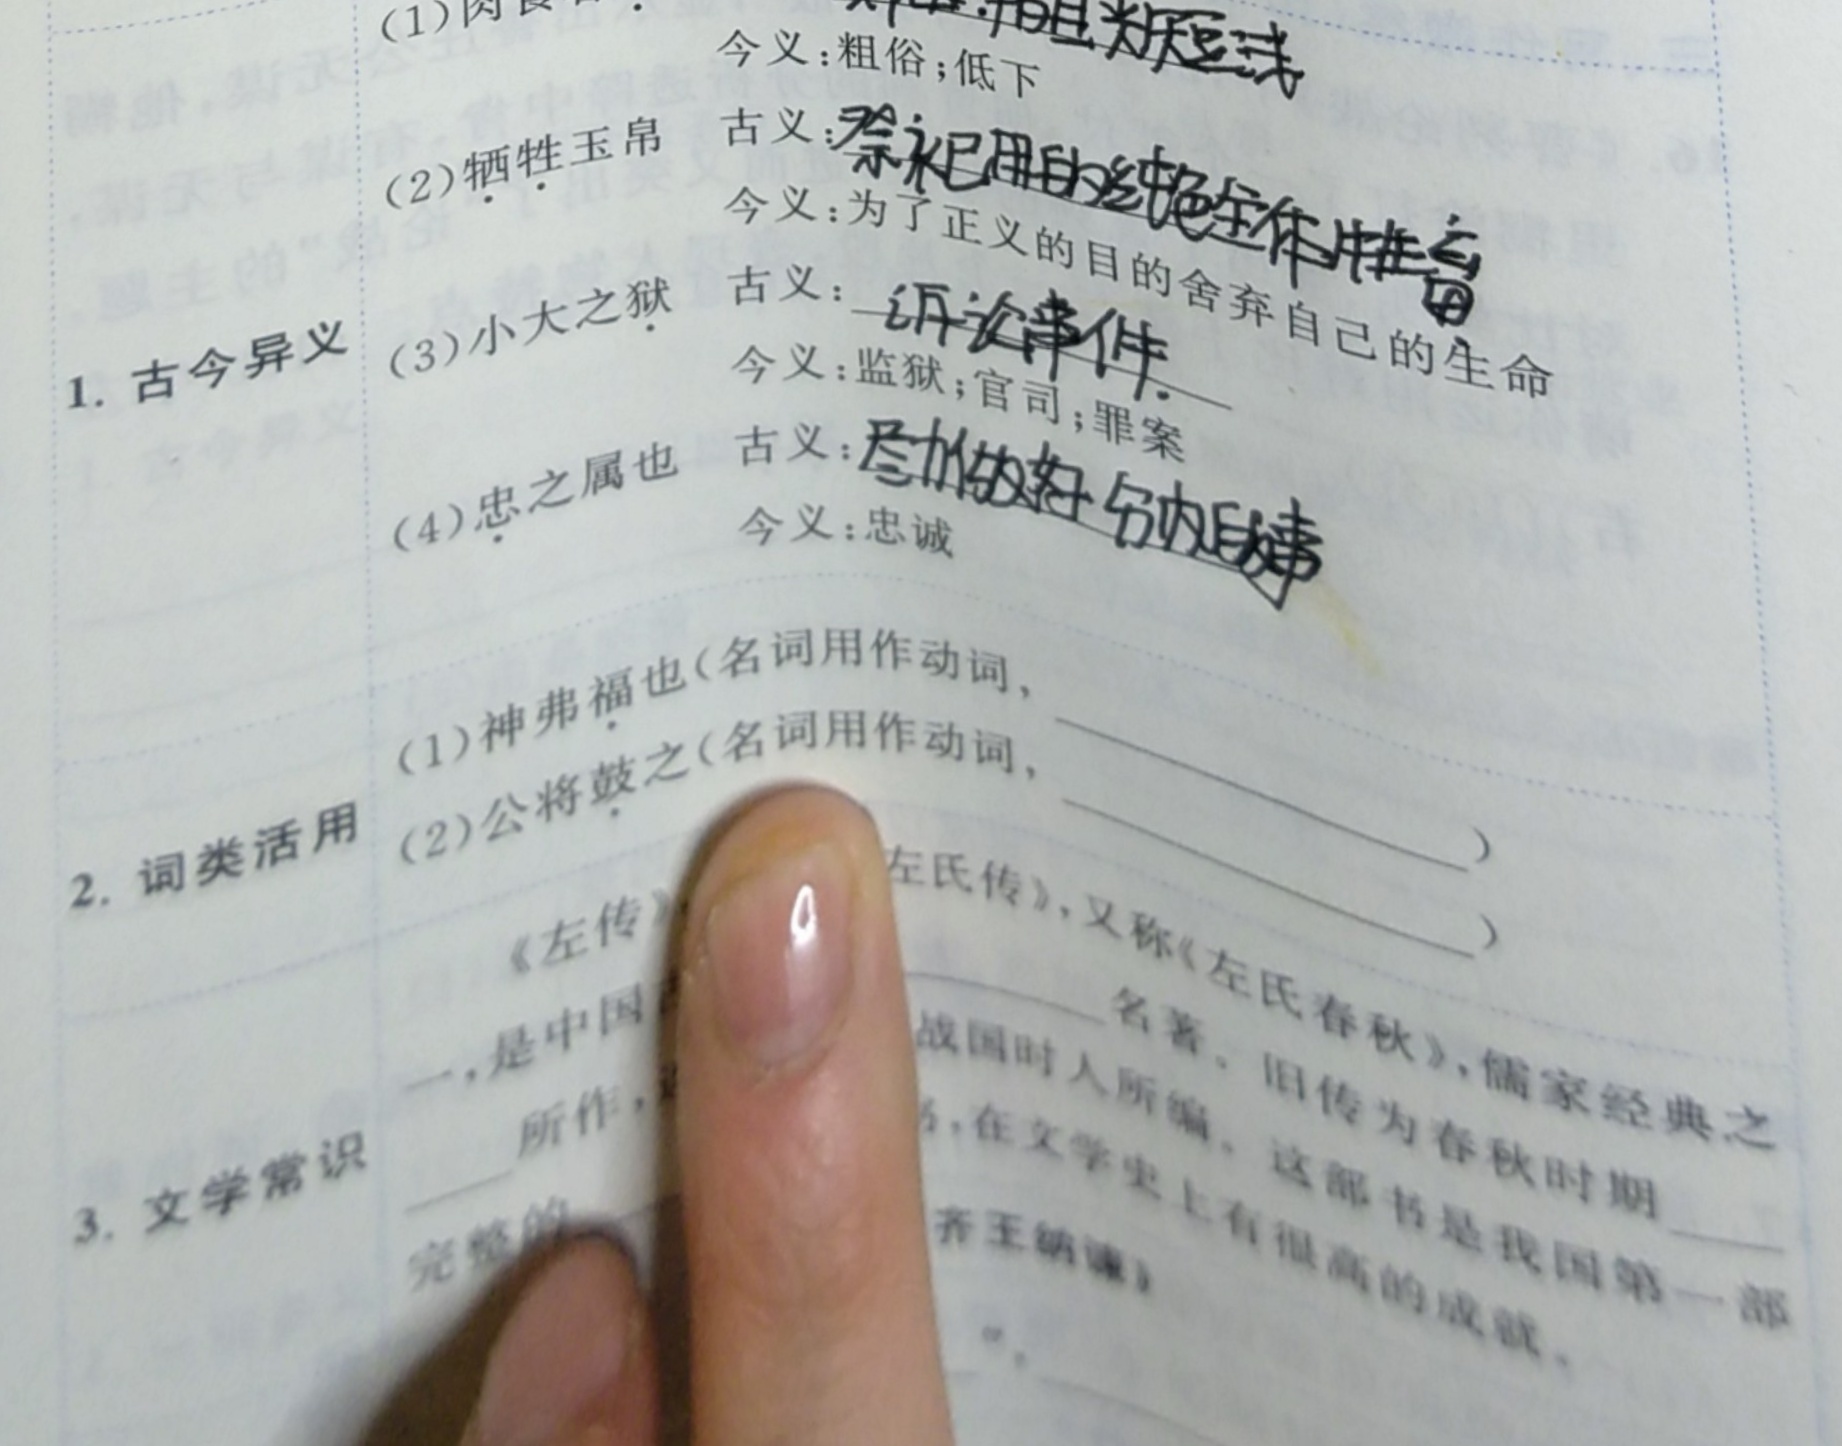 (1)肉食
且判断短浅
今义:粗俗;低下
(2)牺牲玉帛 古义:祭祀用的纯色全体牲畜
今义:为了正义的目的舍弃自己的生命
1. 古今异义 (3)小大之狱 古义:诉讼事件.
今义:监狱;官司;罪案
(4)忠之属也 古义:尽力做好分内的事
今义:忠诚
(1)神弗福也(名词用作动词, )
2. 词类活用 (2)公将鼓之(名词用作动词, )
《左传》 左氏传》,又称《左氏春秋》,儒家经典之
一,是中国 名著。旧传为春秋时期
3. 文学常识 所作, 战国时人所编。这部书是我国第一部
完整的 ,在文学史上有很高的成就。
齐王纳谏》